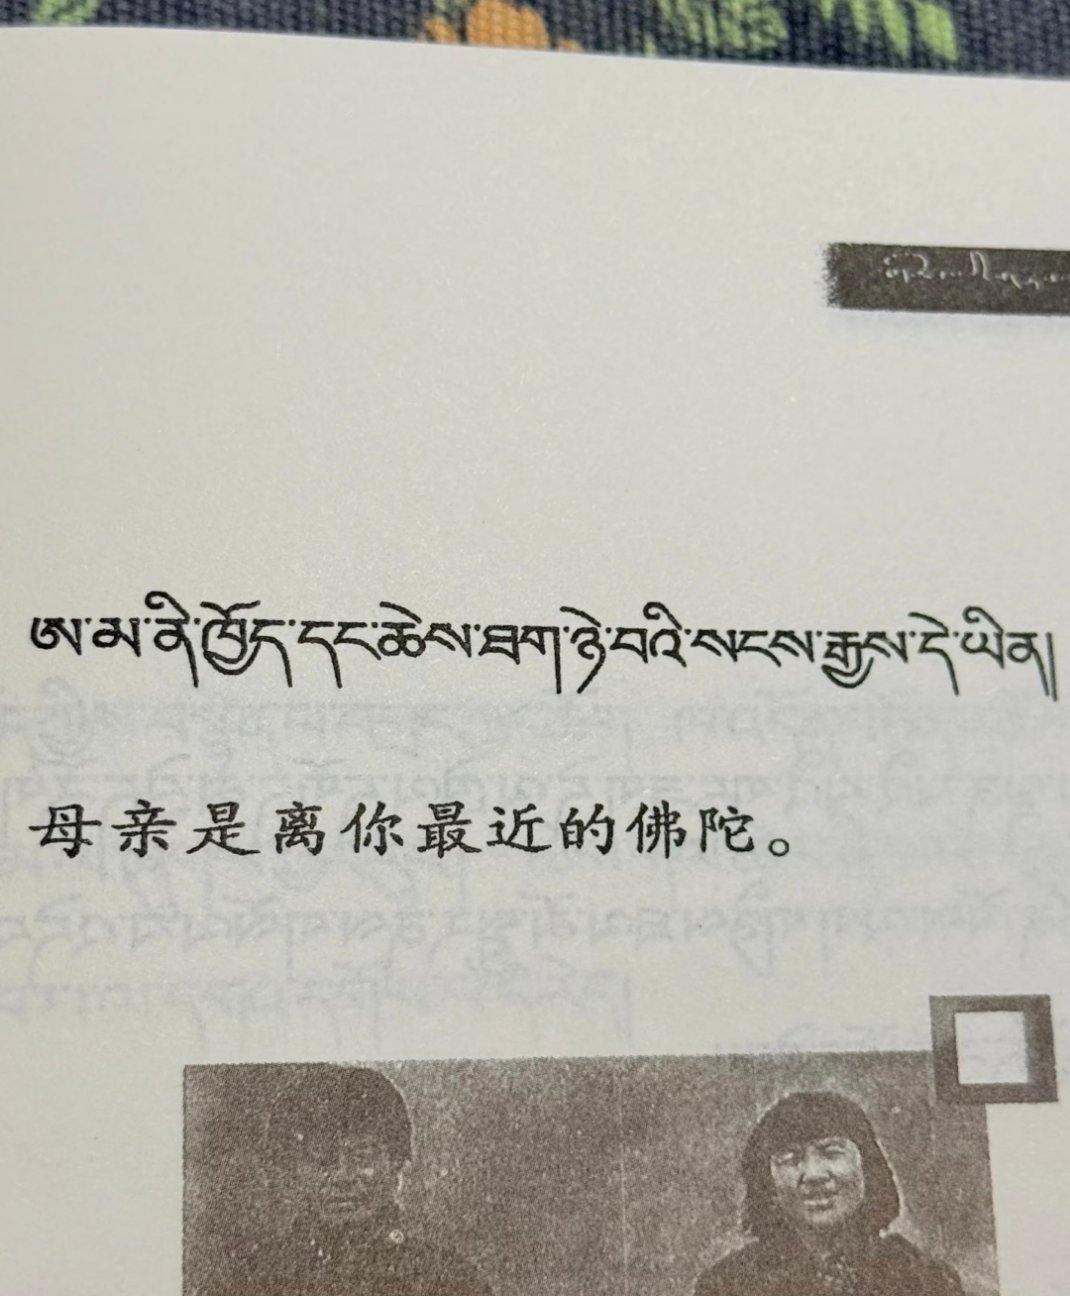 ཨ་མ་ནི་ཁྱོད་དང་ཆེས་ཐག་ཉེ་བའི་སངས་རྒྱས་དེ་ཡིན།
母亲是离你最近的佛陀。